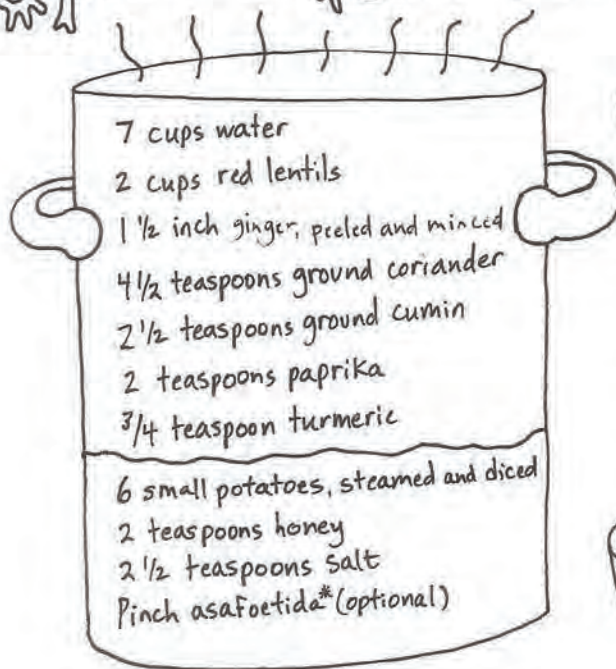 7 cups water
2 cups red lentils
1 ½ inch ginger, peeled and minced
4 ½ teaspoons ground coriander
2 ½ teaspoons ground cumin
2 teaspoons paprika
¾ teaspoon turmeric
6 small potatoes, steamed and diced
2 teaspoons honey
2 ½ teaspoons salt
Pinch asafoetida* (optional)